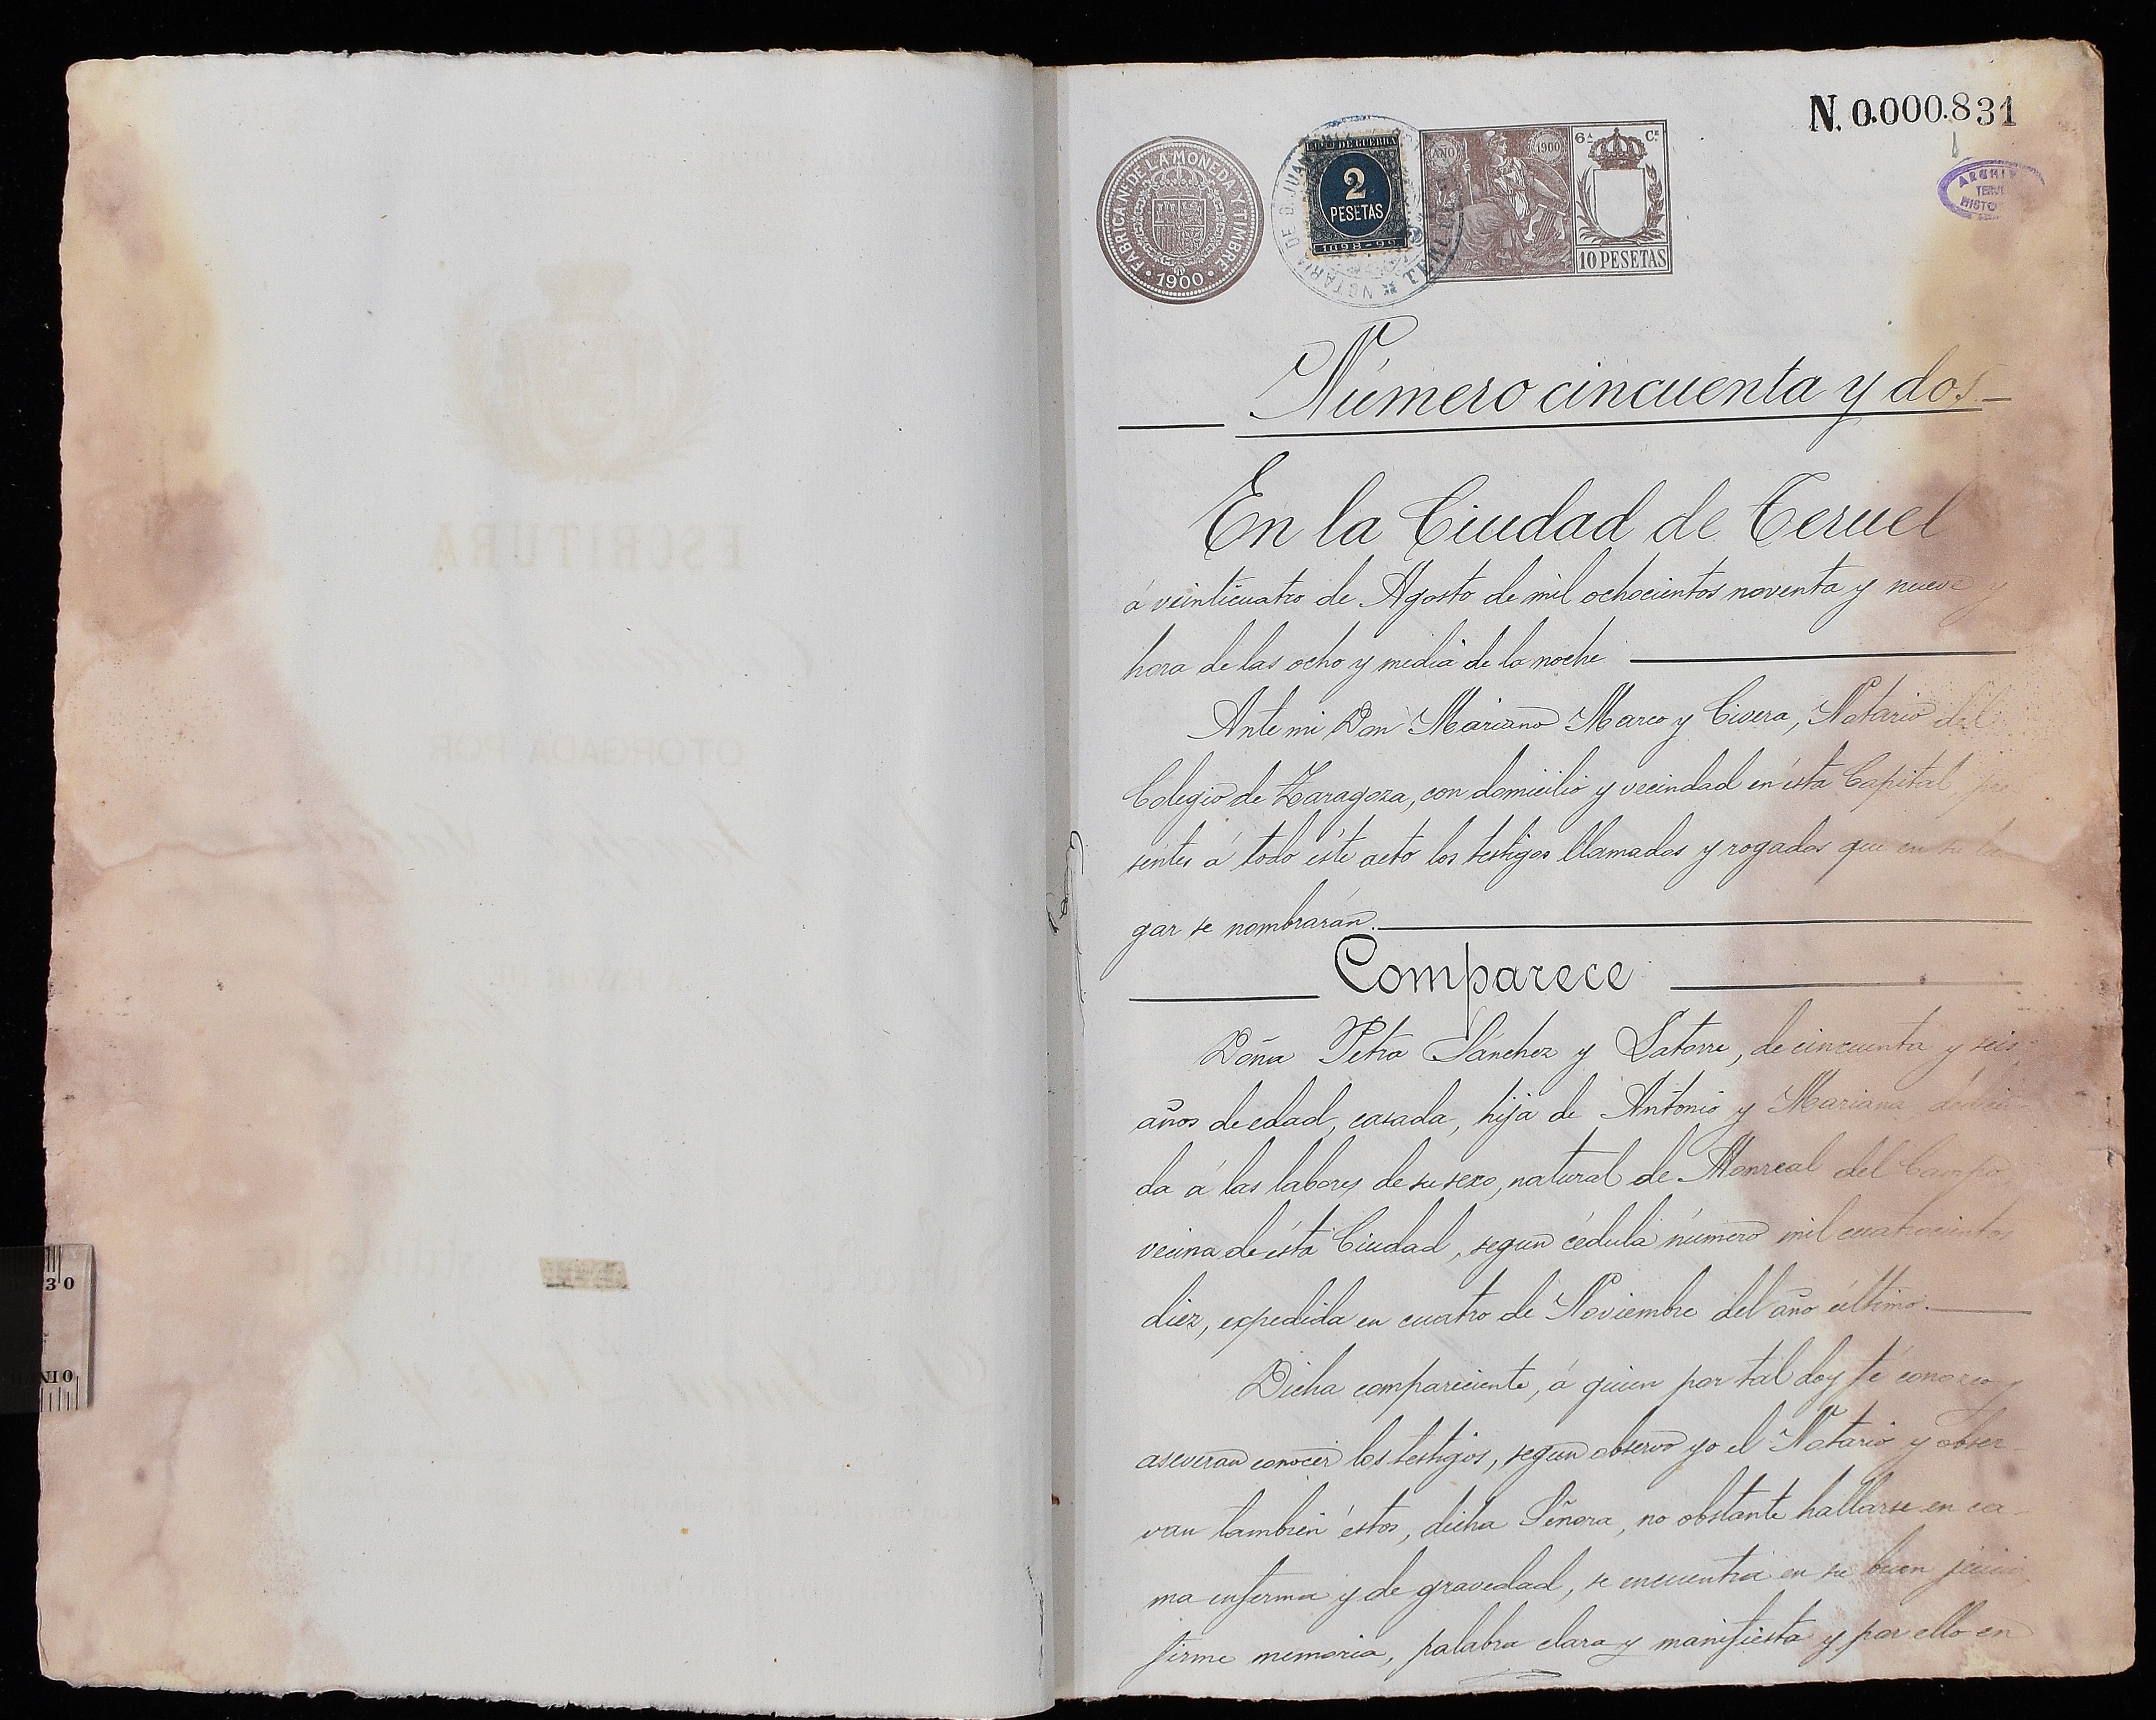 ESCRITURA
OTORGADA POR
30
N. 0.000.831
FÁBRICA NL. DE LA MONEDA Y TIMBRE
1900
NOTARIA DE D. JUAN
TERUEL
DE GUERRA
2
PESETAS
1898-99
AÑO 1900
6ª Cᴱ
10 PESETAS
ARCHI
TERUE
HISTO
Número cincuenta y dos
En la Ciudad de Teruel
á veinticuatro de Agosto de mil ochocientos noventa y nueve y
hora de las ocho y media de la noche.
Ante mi Don Mariano Marco y Civera, Notario del
Colegio de Zaragoza, con domicilio y vecindad en ésta Capital, pre
sentes á todo éste acto los testigos llamados y rogados que en su lu
gar se nombrarán.
Comparece
Doña Petra Sánchez y Latorre, de cincuenta y seis
años de edad, casada, hija de Antonio y Mariana, dedica
da á las labores de su sexo, natural de Monreal del Campo
vecina de ésta Ciudad, segun cédula número mil cuatrocientos
diez, expedida en cuatro de Noviembre del año último.
Dicha compareciente, á quien por tal doy fé conozco y
aseveran conocer los testigos, segun observo yo el Notario y obser
van tambien éstos, dicha Señora, no obstante hallarse en ca-
ma enferma y de gravedad, se encuentra en su buen juicio
firme memoria, palabra clara y manifiesta y por ello en